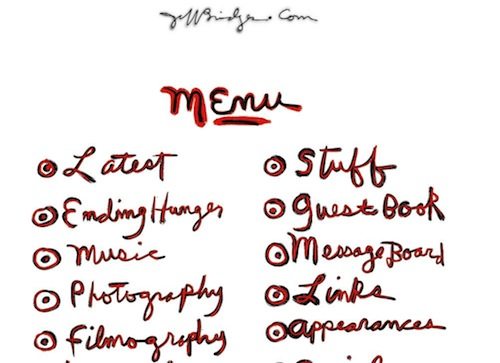 JeffBridges.Com
MENU
Latest
Stuff
Ending Hunger
Guest Book
Music
Message Board
Photography
Links
Filmography
Appearances